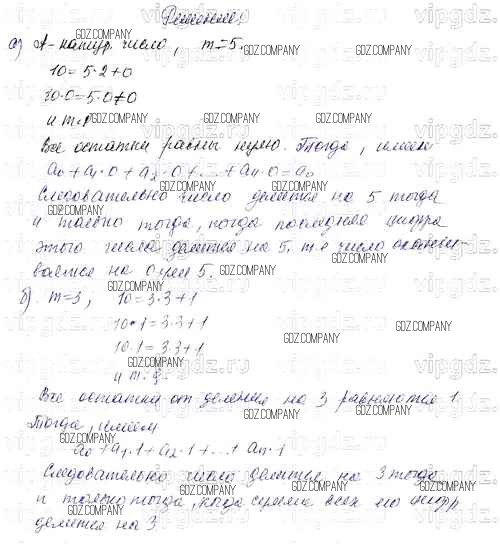 Решение:
а) А – натур. число, m = 5.
10 = 5·2+0
10·0 = 5·0+0
и т.д
Все остатки равны нулю. Тогда, имеем
a₀ + a₁·0 + a₂·0 + ... + aₙ·0 = a₀
Следовательно число делится на 5 тогда
и только тогда, когда последняя цифра
этого числа делится на 5. т.е число оканчи-
вается на 0 или 5.
б). m = 3, 10 = 3·3+1
10·1 = 3·3+1
10·1 = 3·3+1
и т.д.
Все остатки от деления на 3 равняются 1.
Тогда, имеем
a₀ + a₁·1 + a₂·1 + ... + aₙ·1
Следовательно число делится на 3 тогда
и только тогда, когда сумма всех его цифр
делится на 3.